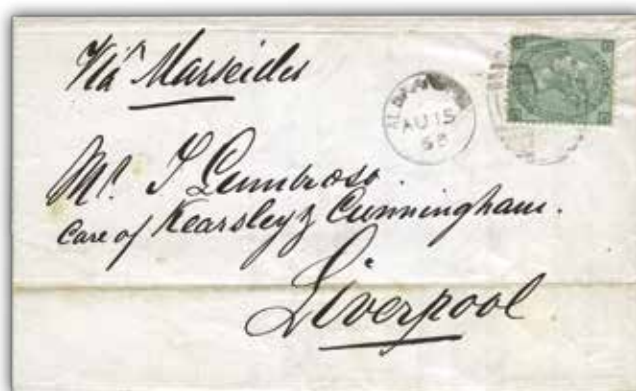 Via Marseilles
AU 15
68
Mr. J Lumbroso
Care of Kearsley & Cunningham.
Liverpool